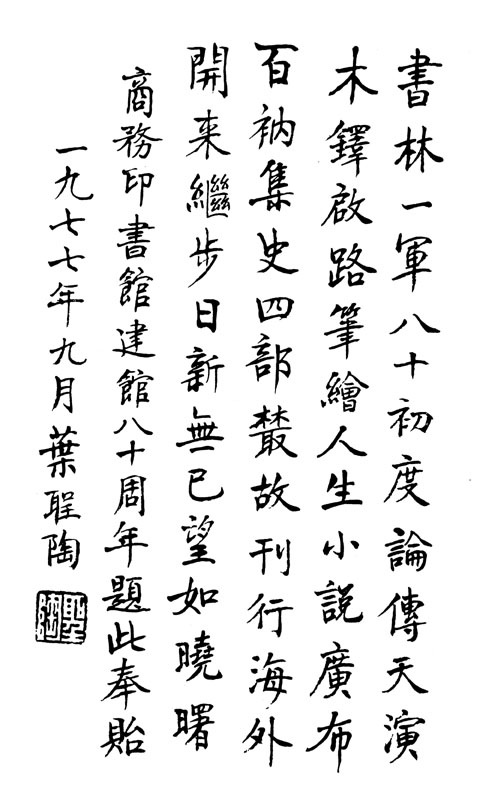 書林一軍八十初度論傳天演
木鐸啟路筆繪人生小説廣布
百衲集史四部叢故刊行海外
開来繼步日新無已望如曉曙
商務印書館建館八十周年題此奉貽
一九七七年九月葉聖陶
聖陶